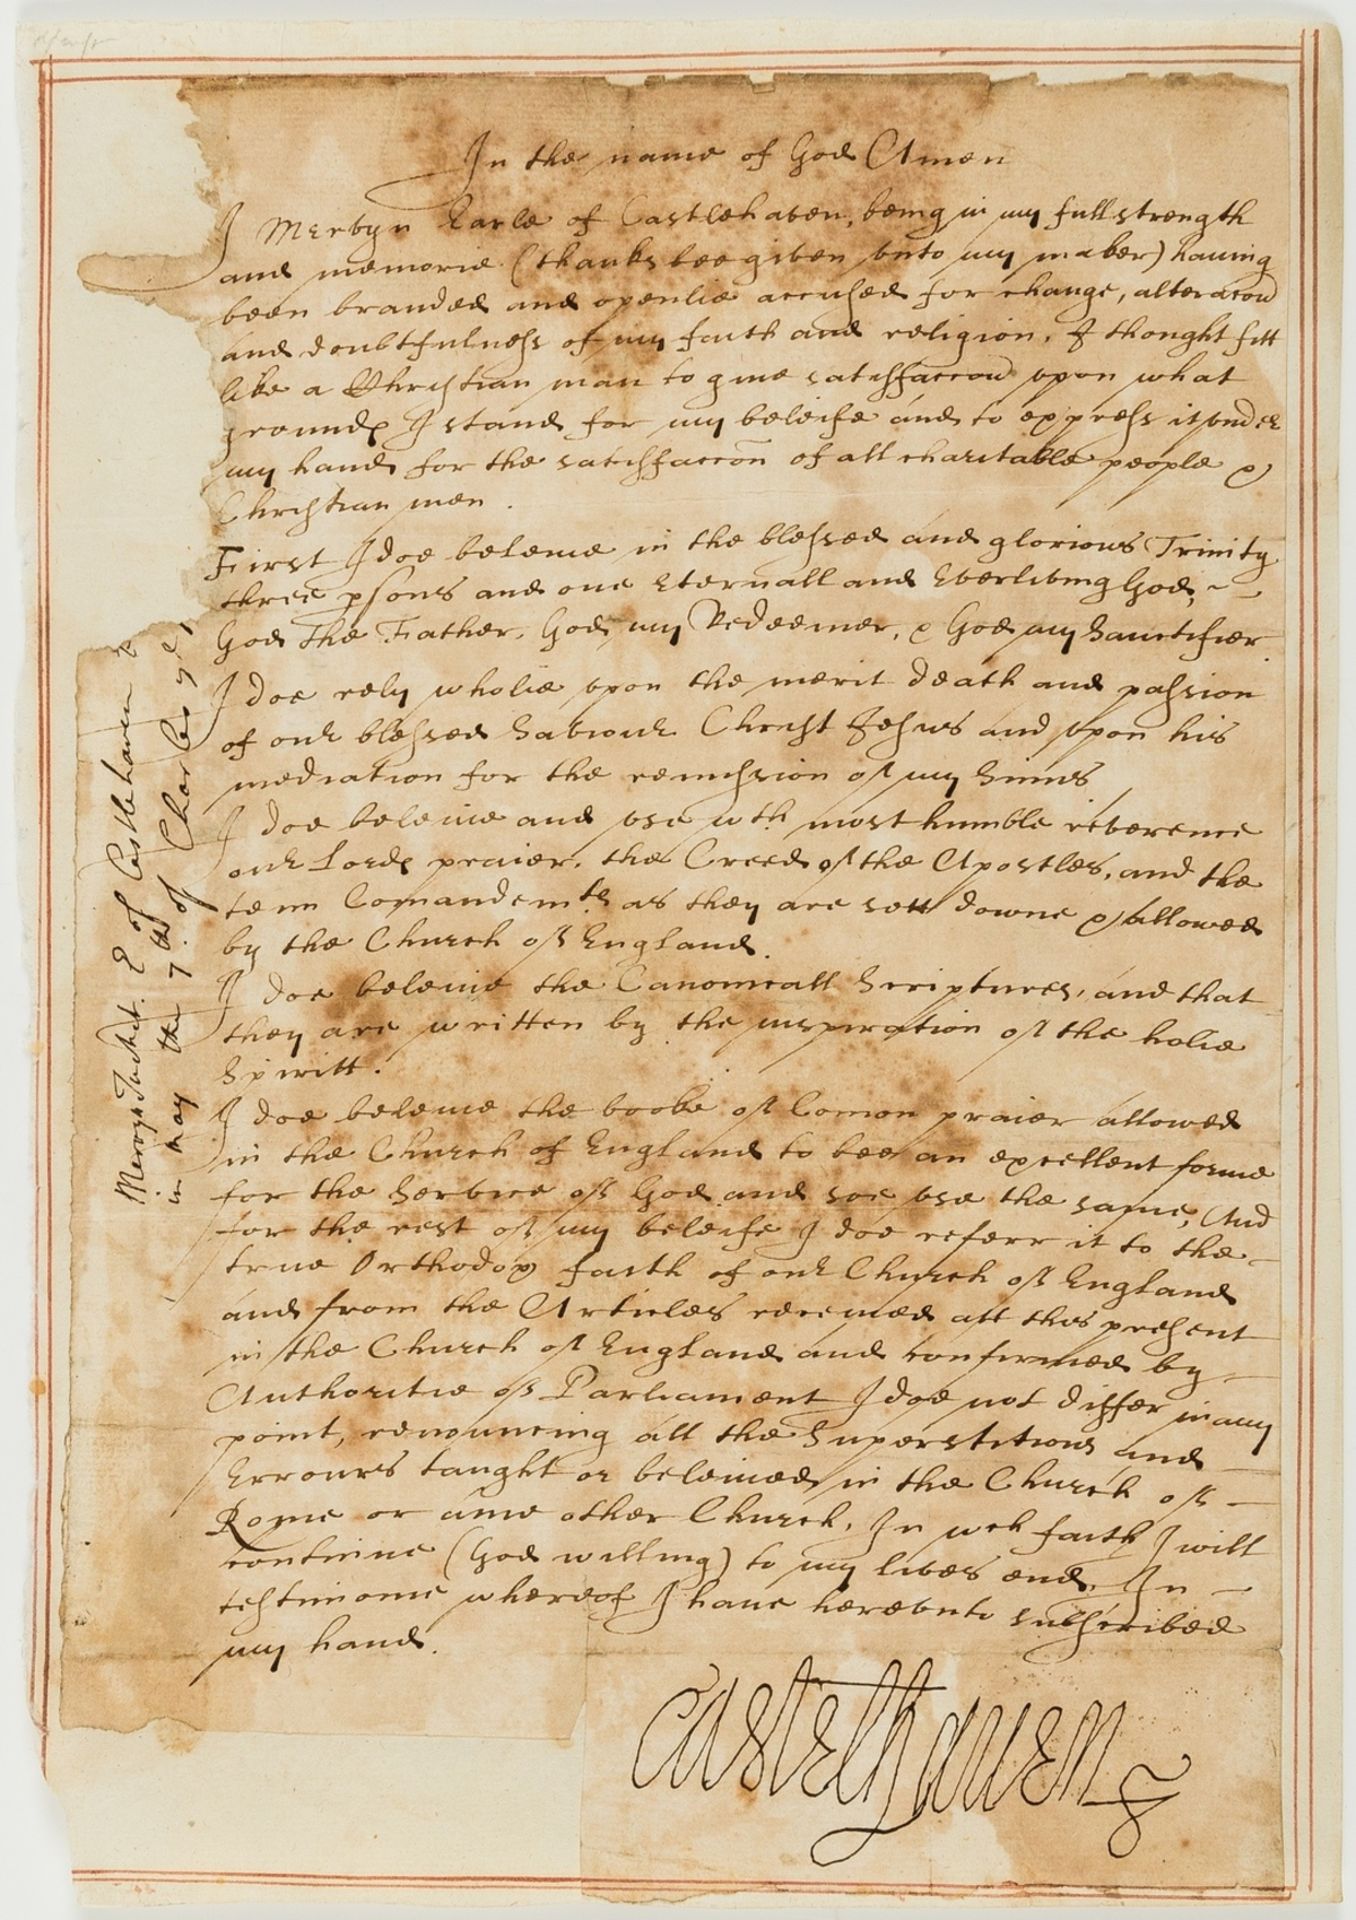 In the name of God Amen
I Mervyn Earle of Castlehaven, being in my full strength
and memorie (thanks bee given vnto my maker) hauing
been branded and openlie accused for change, alteracon
and doubtfulness of my faith and religion, I thought fitt
like a Christian man to giue satisfaccon vpon what
grounds I stand for my beleife and to express it vnder
my hand for the satisfaccon of all charitable people &
Christian men.
First I doe beleiue in the blessed and glorious Trinity
three psons and one Eternall and Everliving God,
God the Father, God my Redeemer, & God my Sanctifier.
I doe rely wholie vpon the merit death and passion
of our blessed Saviour Christ Jesus and vpon his
mediation for the remission of my sinnes
I doe beleiue and vse wth most humble reverence
our Lords praier, the Creed of the Apostles, and the
tenn Comandemts as they are sett downe & allowed
by the Church of England.
I doe beleiue the Canonicall Scriptures, and that
they are written by the inspiration of the holie
Spiritt.
I doe beleiue the booke of Comon praier allowed
in the Church of England to bee an excellent forme
for the Service of God and soe vse the same, And
for the rest of my beleife I doe referr it to the
true Orthodox faith of our Church of England
and from the Articles receiued att this present
in the Church of England and confirmed by
Authoritie of Parliament I doe not differ in any
point, renouncing all the Superstitions and
Errours taught or beleiued in the Church of
Rome or anie other Church, In wch faith I will
continue (God willing) to my lives end. In
testimonie wherof I haue herevnto subscribed
my hand.
Castelhauen
Mervyn Tuchet. E of Castlehaven
in may the 7 of Charles ye